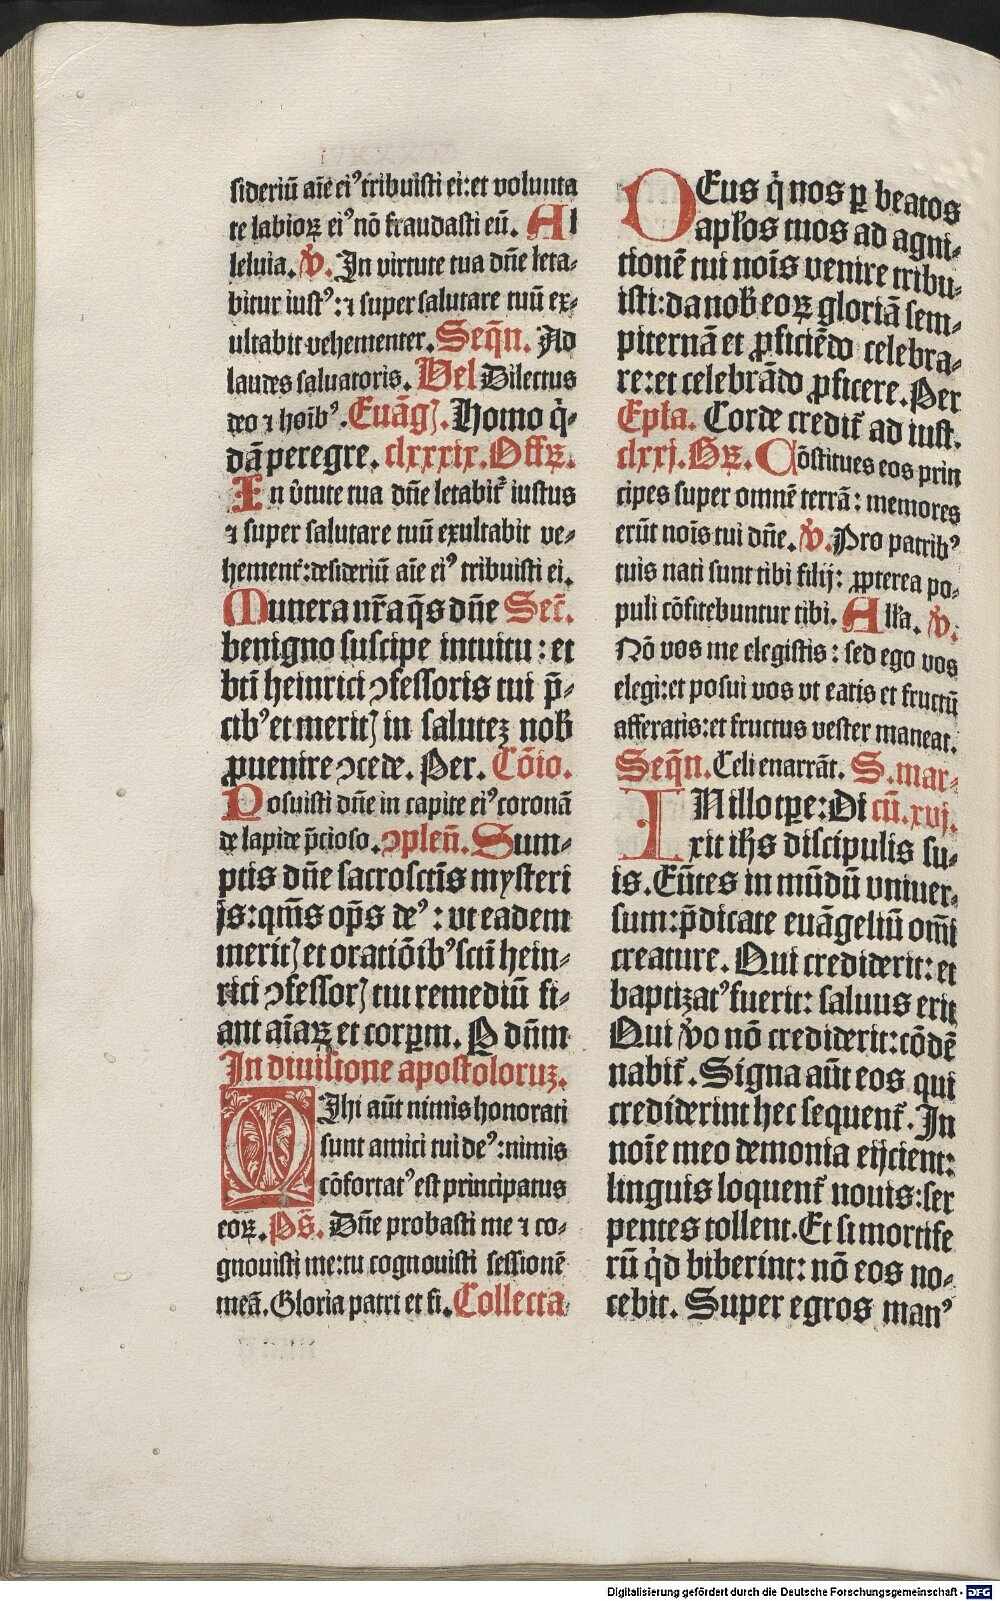 sideriū aīe eiꝰ tribuisti ei: et volunta
te labioꝝ eiꝰ nō fraudasti eū. Al
leluia. ꝟ. In virtute tua dn̄e leta-
bitur iustꝰ: ⁊ super salutare tuū ex-
ultabit vehementer. Seqn̄. Ad
laudes saluatoris. Vel Dilectus
deo ⁊ hoībꝰ. Euāgꝭ. Homo q̇-
dā peregre. clxxxix. Offꝝ.
In v̇tute tua dn̄e letabit᷑ iustus
⁊ super salutare tuū exultabit ve-
hement᷑: desideriū aīe eiꝰ tribuisti ei.
Munera nr̄a q̄s dn̄e Sec̄.
benigno suscipe intuitu: et
bt̄i heinrici ꝯfessoris tui p̄-
cibꝰ et meritꝭ in salutez nob̄
ꝓuenire ꝯcede. Per. Cōio.
Posuisti dn̄e in capite eiꝰ coronā
de lapide p̄cioso. ꝯplen̄. Sum-
ptis dn̄e sacrosctīs mysteri
js: qm̄s op̄s deꝰ: vt eadem
meritꝭ et oratiōibꝰ sctī hein-
rici ꝯfessorꝭ tui remediū fi-
ant aīaꝝ et corpꝝm. P dn̄m
In diuisione apostoloruꝫ.
MIhi aūt nimis honorati
sunt amici tui deꝰ: nimis
cōfortatꝰ est principatus
eoꝝ. Ps̄. Dn̄e probasti me ⁊ co-
gnouisti me: tu cognouisti sessionē
meā. Gloria patri et fi. Collecta
DEus q̇ nos ꝑ beatos
apl̄os tuos ad agni-
tionē tui noīs venire tribu-
isti: da nob̄ eoꝝ gloriā sem-
piternā et ꝓficiēdo celebra-
re: et celebrādo ꝓficere. Per
Epl̄a. Corde credit᷑ ad iust.
clxxj. Gꝝ. Cōstitues eos prin
cipes super omnē terrā: memores
erūt noīs tui dn̄e. ꝟ. Pro patribꝰ
tuis nati sunt tibi filij: ꝓpterea po-
puli cōfitebuntur tibi. All̄a. ꝟ.
Nō vos me elegistis: sed ego vos
elegi: et posui vos vt eatis et fructū
afferatis: et fructus vester maneat.
Seqn̄. Celi enarrāt. S. mar-
IN illo tꝑe: Di cū. xvj.
xit ih̄s discipulis su-
is. Eūtes in mūdū vniuer-
sum: p̄dicate euāgeliū om̄i
creature. Qui crediderit: et
baptizatꝰ fuerit: saluus erit
Qui v̇o nō crediderit: cōdē
nabit᷑. Signa aūt eos qui
crediderint hec sequent᷑. In
noīe meo demonia eijcient:
linguis loquent᷑ nouis: ser
pentes tollent. Et si mortife
rū q̇d biberint: nō eos no-
cebit. Super egros manꝰ
Digitalisierung gefördert durch die Deutsche Forschungsgemeinschaft - DFG